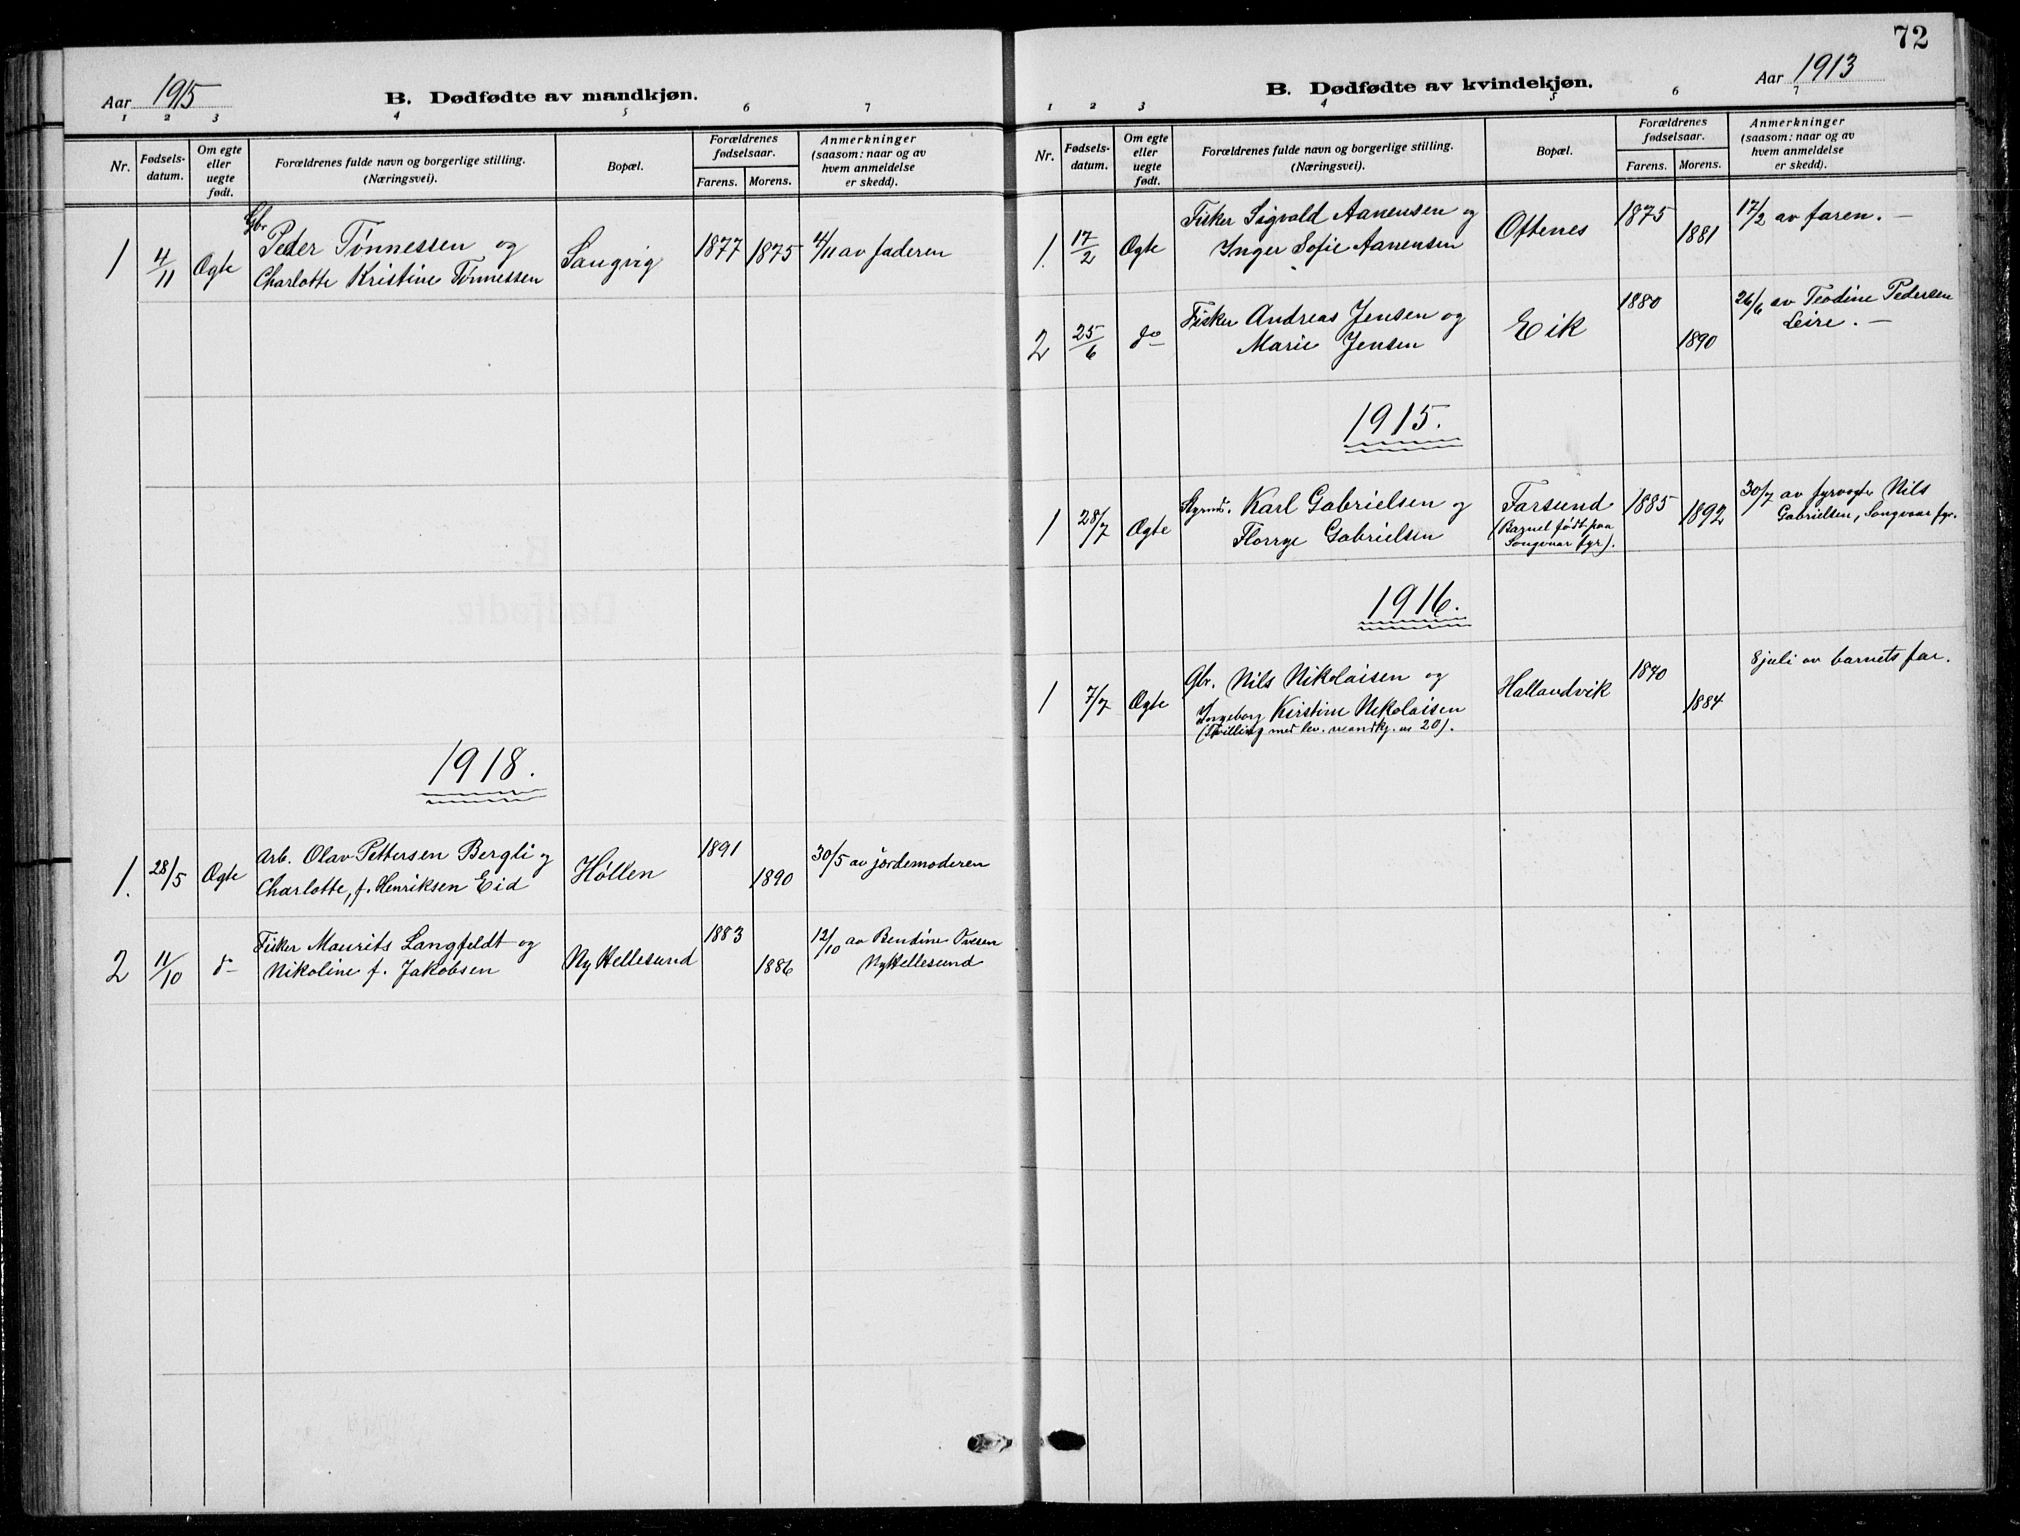 Aar 1915
B. Dødfødte av mandkjøn.
1 2 3 4 5 6 7
Nr.
Fødsels-
datum.
Om egte
eller
uegte
født.
Forældrenes fulde navn og borgerlige stilling.
(Næringsvei).
Bopæl.
Forældrenes
fødselsaar.
Farens. Morens.
Anmerkninger
(saasom: naar og av
hvem anmeldelse
er skedd).
1 4/11 Ægte Gbr. Peder Tønnessen og Sangvig 1877 1875 4/11 av faderen
Charlotte Kristine Tønnessen
1918.
1. 28/5 Ægte Arb. Olav Pettersen Bergli og Høllen 1891 1890 30/5 av jordemoderen
Charlotte, f. Henriksen Eid
2 11/10 do Fisker Maurits Langfeldt og Ny Hellesund 1883 1886 12/10 av Bendine Ovesen
Nikoline f. Jakobsen Ny Hellesund
72
Aar 1913
B. Dødfødte av kvindekjøn.
1 2 3 4 5 6 7
Nr.
Fødsels-
datum.
Om egte
eller
uegte
født.
Forældrenes fulde navn og borgerlige stilling.
(Næringsvei).
Bopæl.
Forældrenes
fødselsaar.
Farens. Morens.
Anmerkninger
(saasom: naar og av
hvem anmeldelse
er skedd).
1. 17/2 Ægte Fisker Sigvald Aanensen og Oftenes 1875 1881 17/2 av faren. —
Inger Sofie Aanensen
2 25/6 do Fisker Andreas Jensen og Eik 1880 1890 26/6 av Teodine Pedersen
Marie Jensen Leire. —
1915.
1 28/7 Ægte Styrmd. Karl Gabrielsen og Farsund 1885 1892 30/7 av fyrvogter Nils
Florrye Gabrielsen (Barnet født paa Gabrielsen, Songvaar fyr.
Songvaar fyr).
1916.
1 7/7 Ægte Gbr. Nils Nikolaisen og Hallandvik 1840 1884 8 juli av barnets far.
Ingeborg Kirstine Nikolaisen
(Tvilling med lev. mandkj. nr 20).